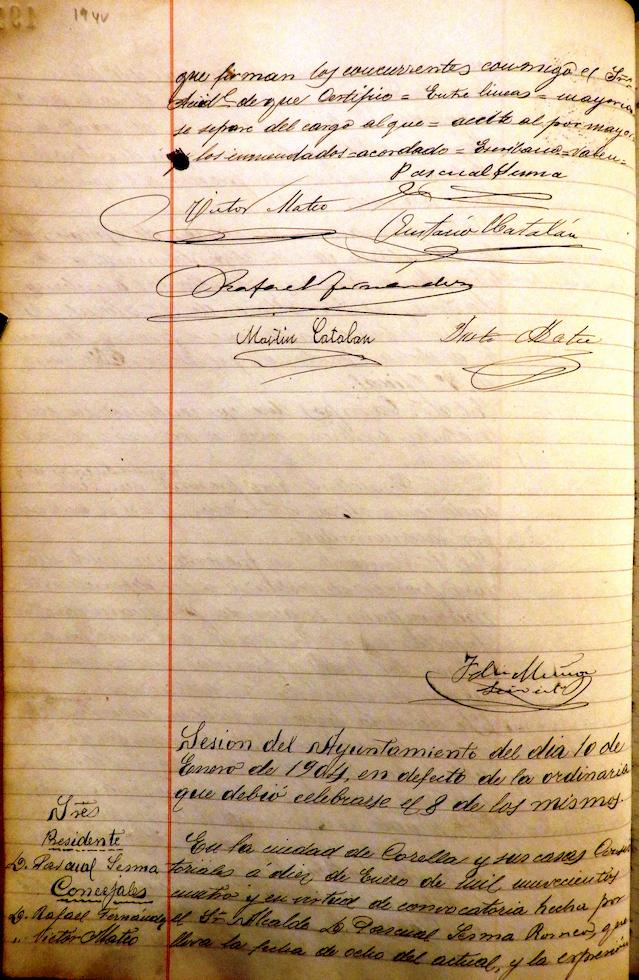 1904
que firman los concurrentes conmigo el Srio
de que Certifico = Entre lineas = mayoria
se separe del cargo al que = aceite al por mayor
y los enmendados = acordado = Escribano = Valen =
Pascual Sesma
Victor Mateo
Eustasio Catalán
Rafael Fernández
Martin Catalan
Mateo
Felix Muñoz
Sesion del Ayuntamiento del dia 10 de
Enero de 1904, en defecto de la ordinaria
que debió celebrarse el 8 de los mismos
Sres
Presidente
D. Pascual Sesma
Concejales
D. Rafael Fernández
" Victor Mateo
En la ciudad de Corella y sus casas Consis
toriales á diez de Enero de mil novecientos
cuatro y en virtud de convocatoria hecha por
el Sr. Alcalde D. Pascual Sesma Romeo, que
lleva la fecha de ocho del actual, y la expresión